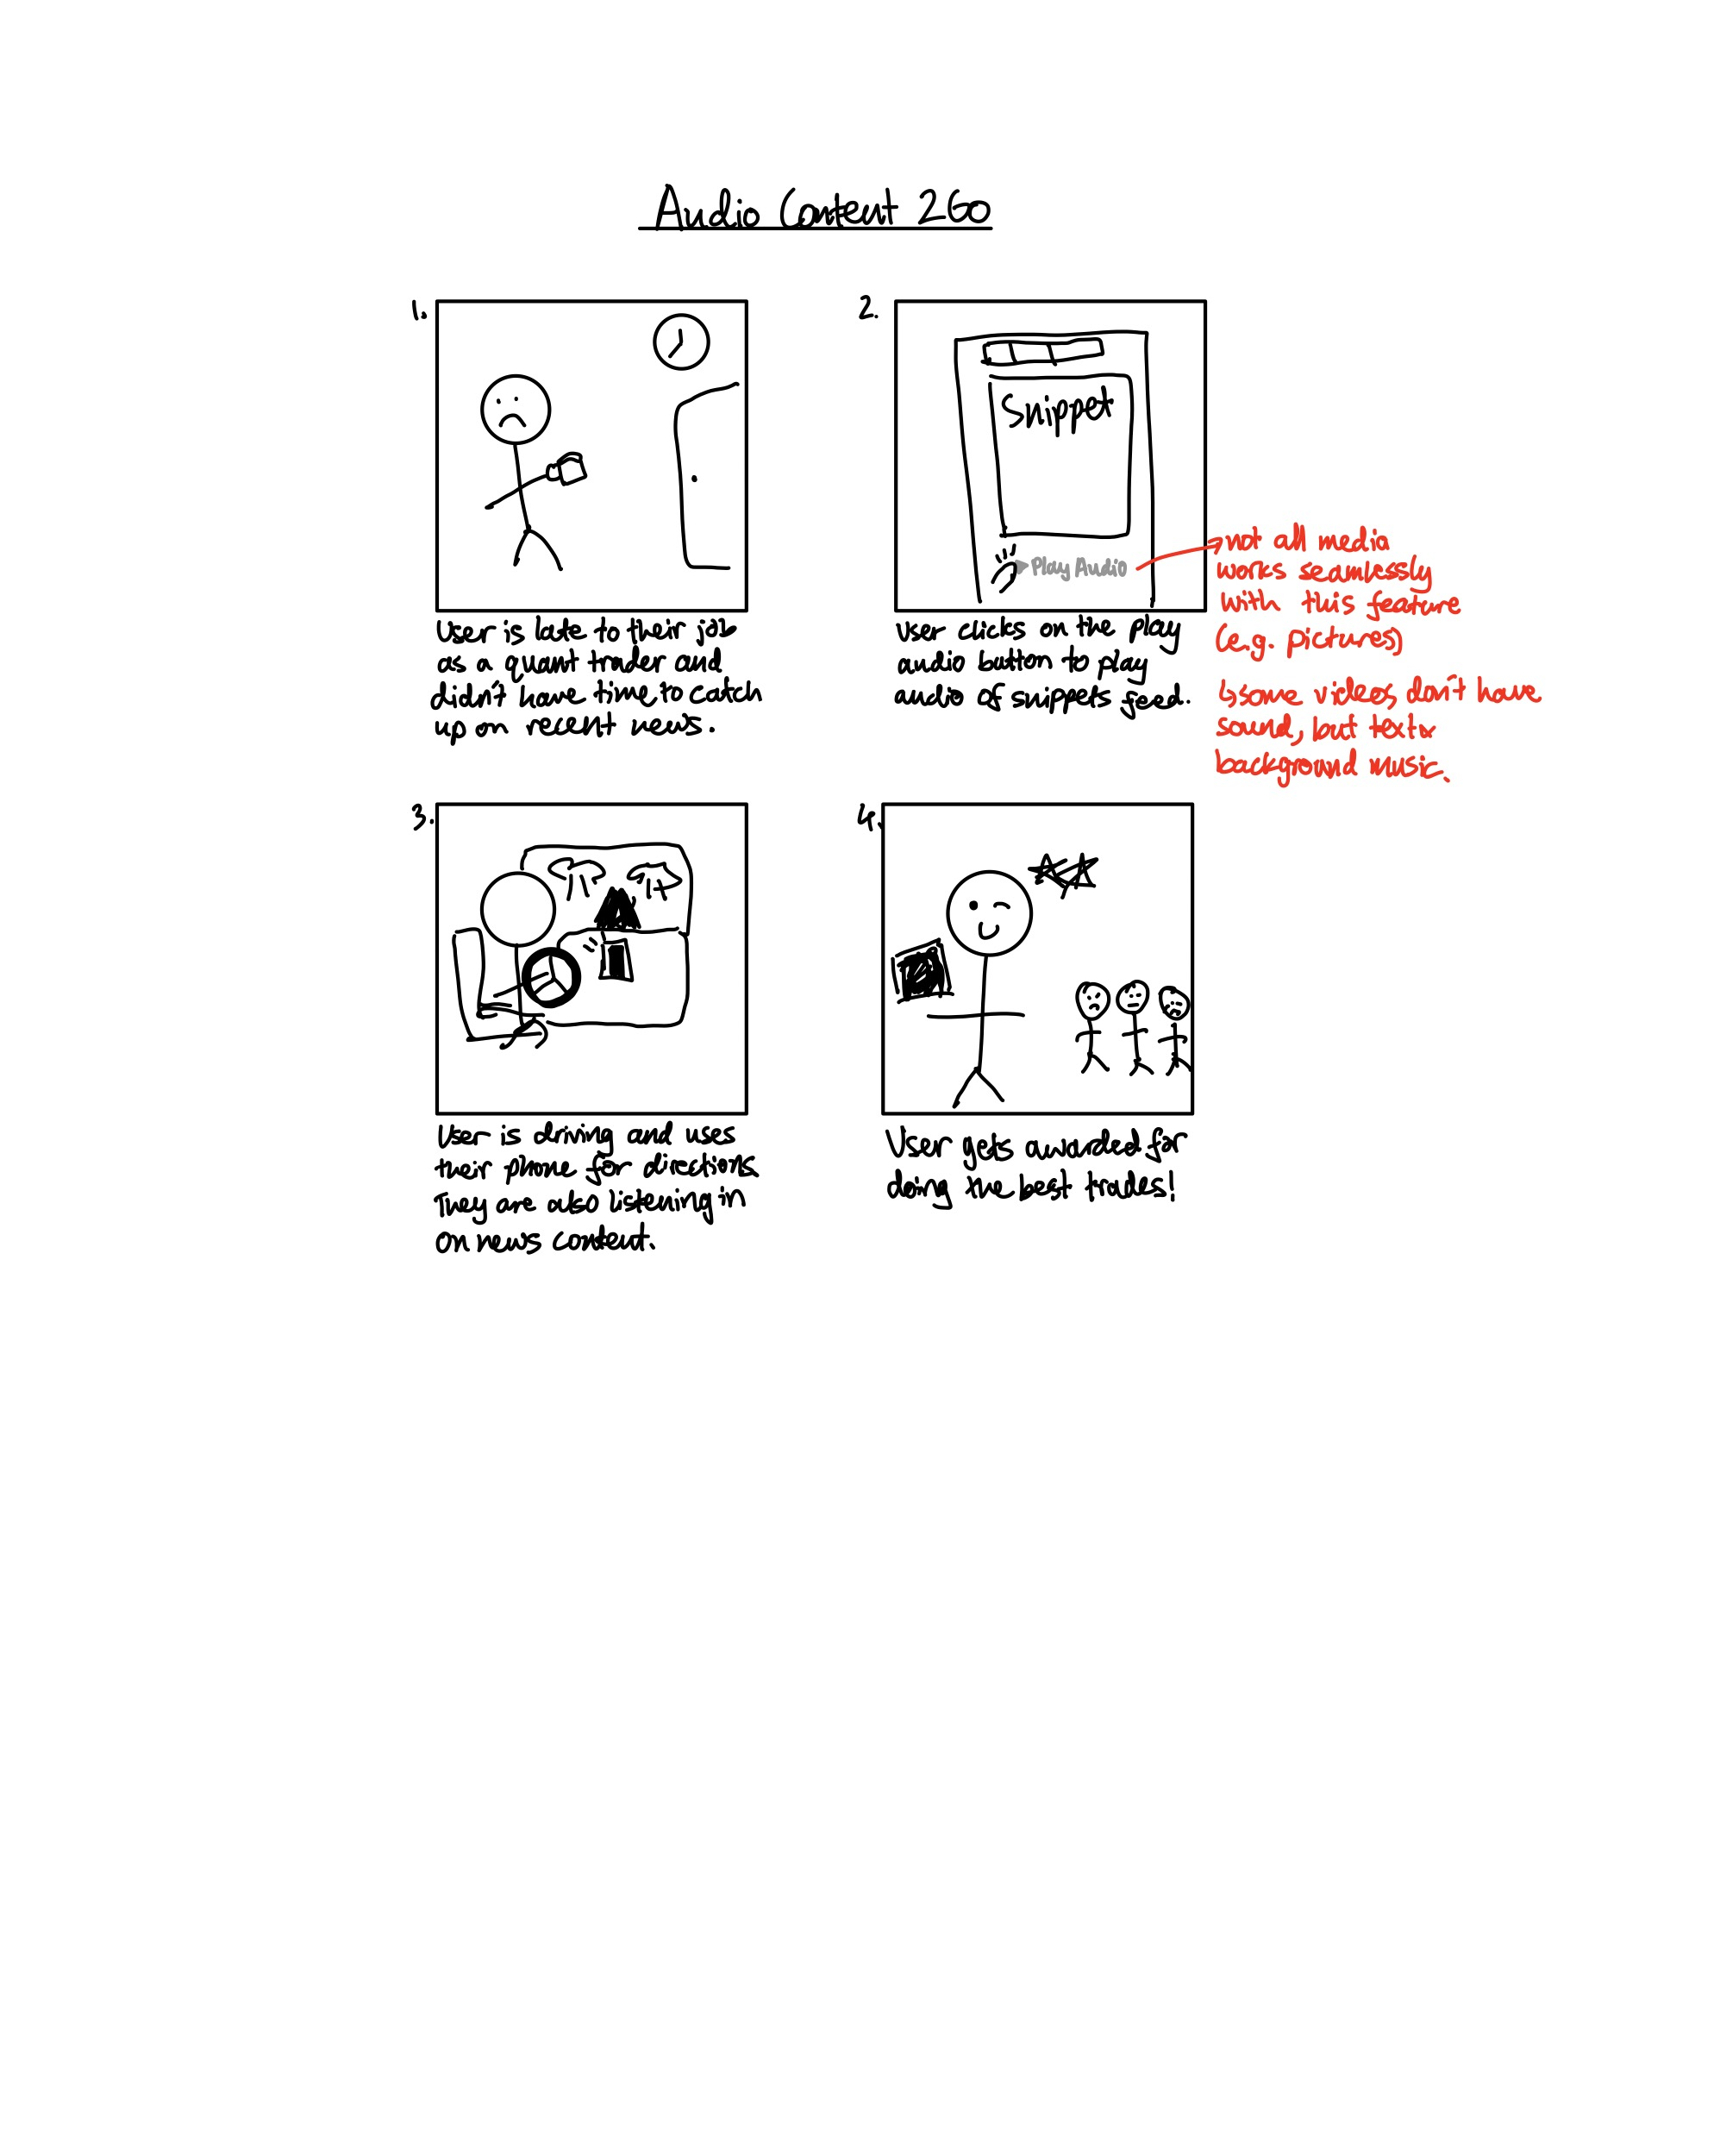 Audio Content 2GO
1.
User is late to their job
as a quant trader and
didn't have time to catch
up on recent news.
2.
Snippet
Play Audio
User clicks on the play
audio button to play
audio of snippets feed.
not all media
works seamlessly
with this feature
(e.g. pictures)
↳some videos don't have
sound, but text x
background music.
3.
User is driving and uses
their phone for directions
They are also listening in
on news content.
4.
User gets awarded for
doing the best trades!